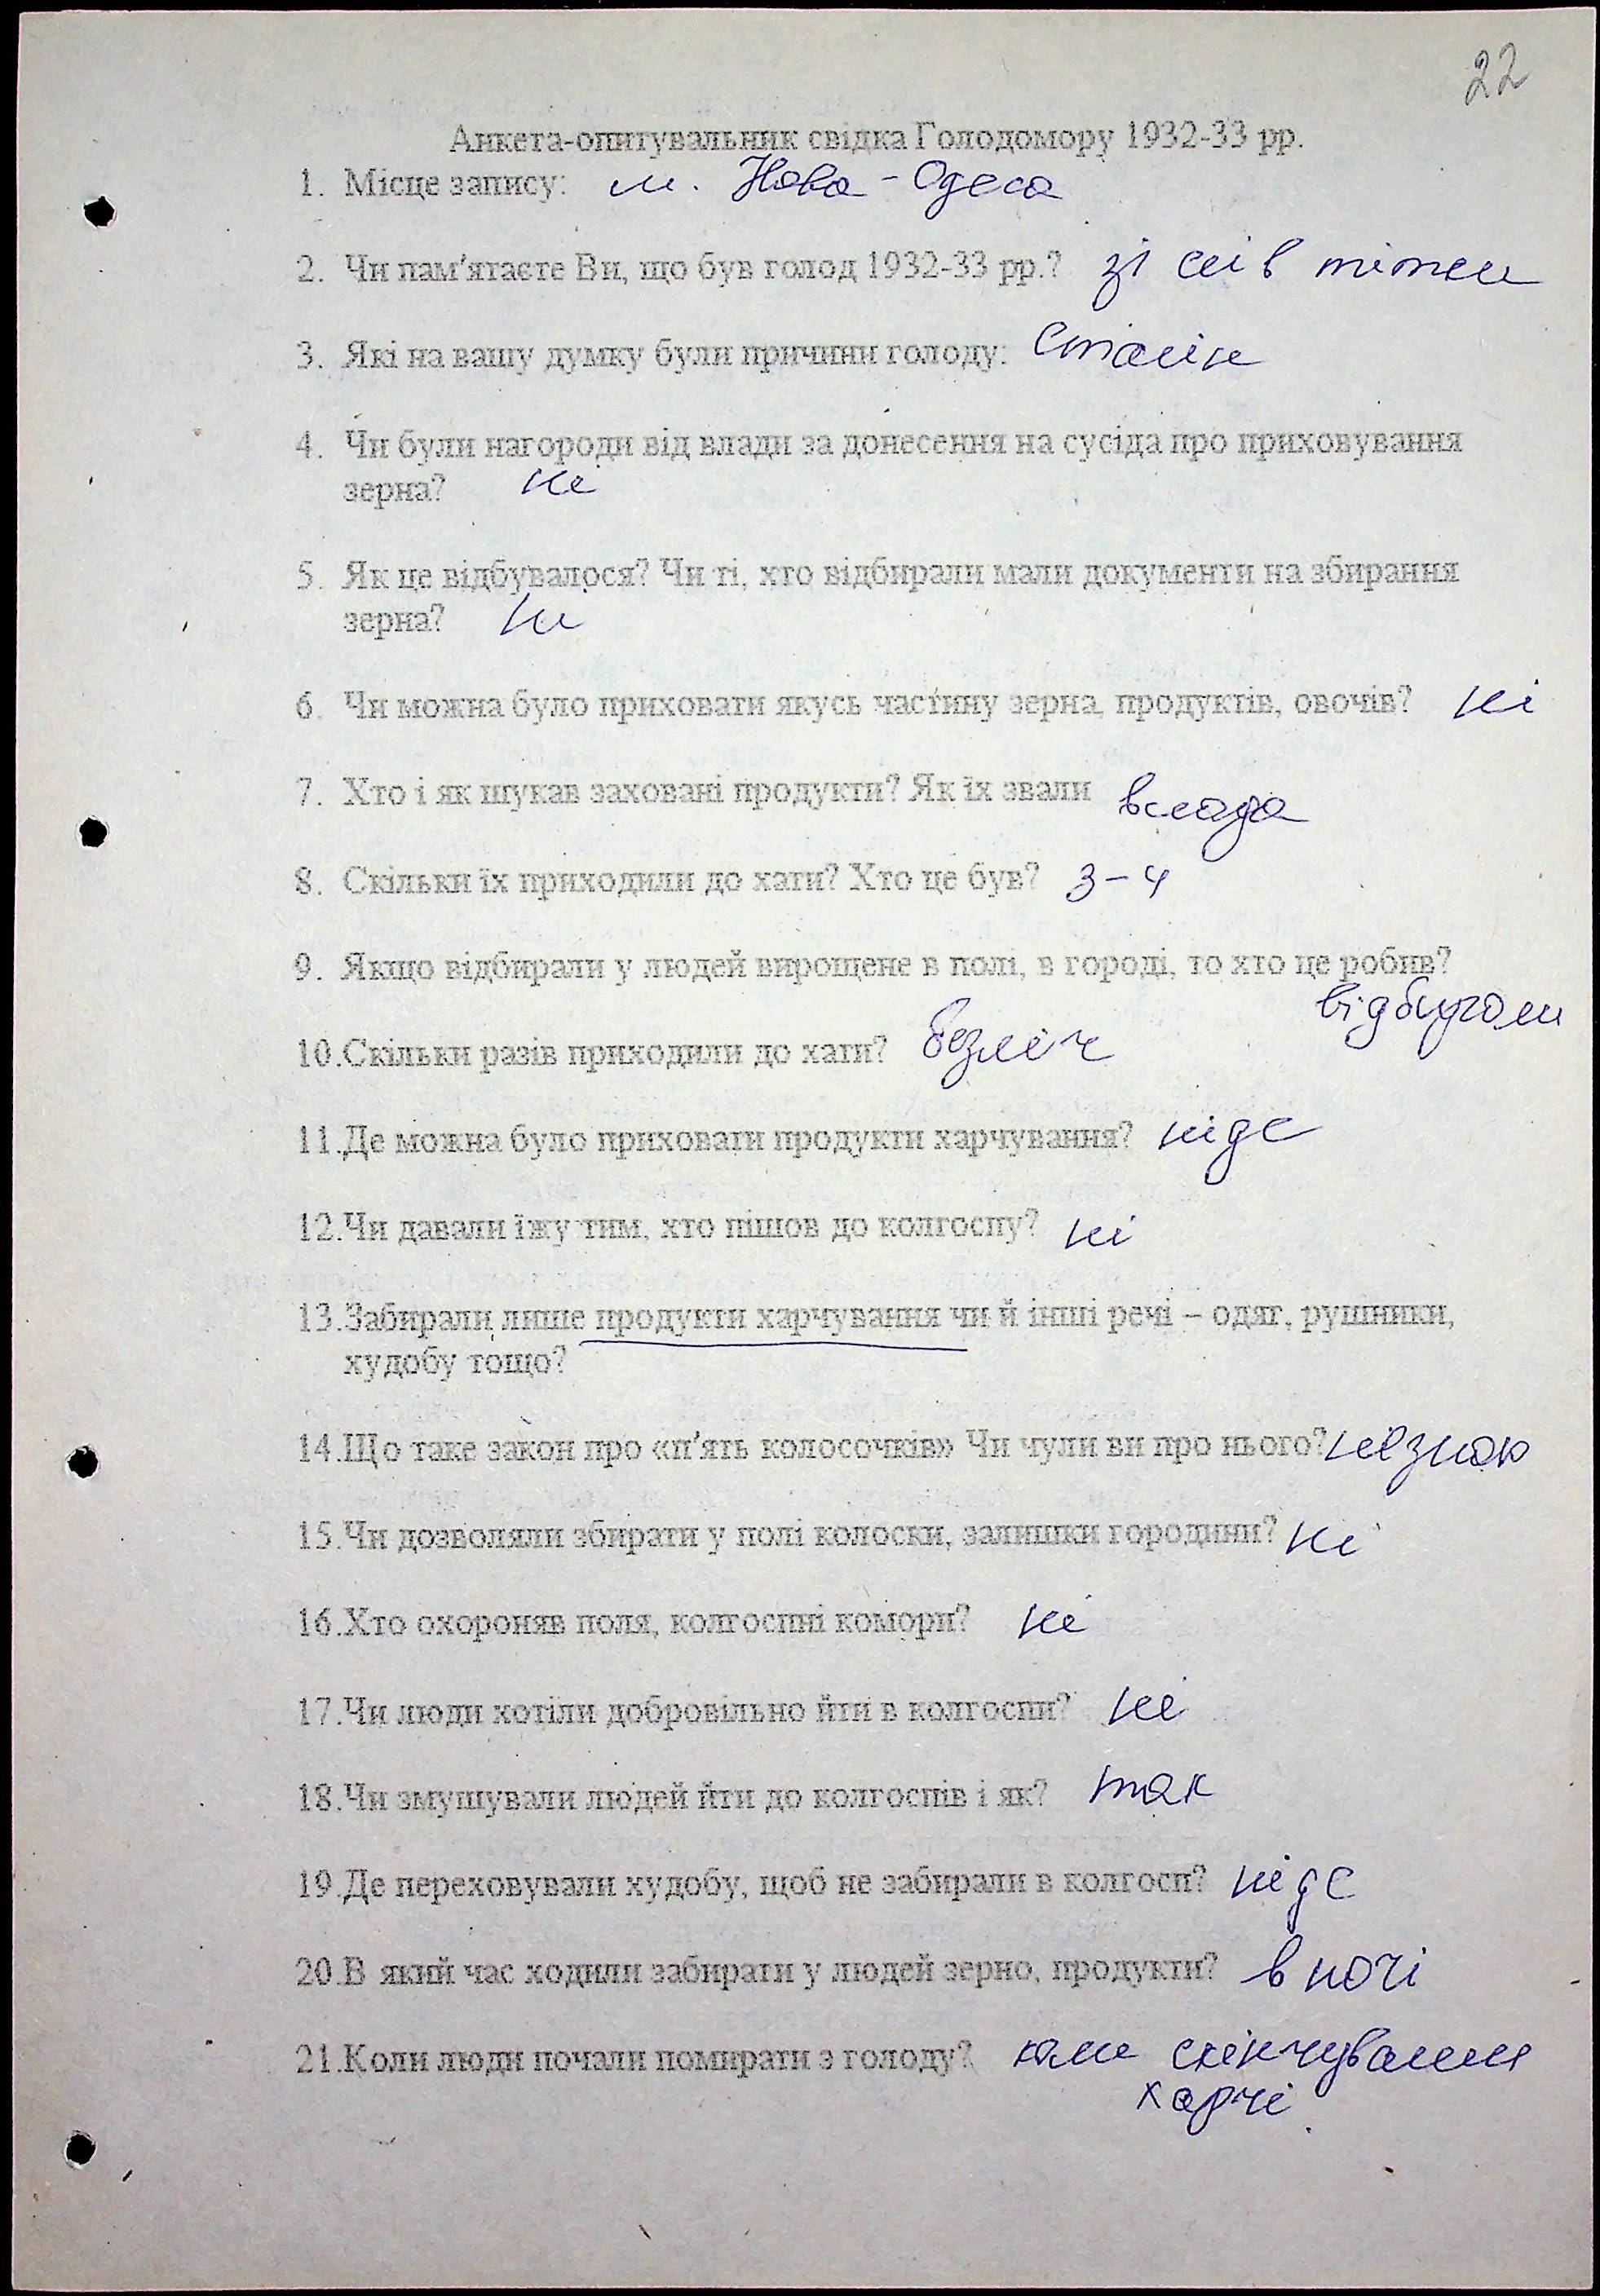 22
Анкета-опитувальник свідка Голодомору 1932-33 рр.
1. Місце запису: м. Нова-Одеса
2. Чи пам'ятаєте Ви, що був голод 1932-33 рр.? зі слів тітки
3. Які на вашу думку були причини голоду: Сталін
4. Чи були нагороди від влади за донесення на сусіда про приховування
зерна? ні
5. Як це відбувалося? Чи ті, хто відбирали мали документи на збирання
зерна? ні
6. Чи можна було приховати якусь частину зерна, продуктів, овочів? ні
7. Хто і як шукав заховані продукти? Як їх звали влада
8. Скільки їх приходили до хати? Хто це був? 3-4
9. Якщо відбирали у людей вирощене в полі, в городі, то хто це робив?
відбирали
10.Скільки разів приходили до хати? безліч
11.Де можна було приховати продукти харчування? ніде
12.Чи давали їжу тим, хто пішов до колгоспу? ні
13.Забирали лише продукти харчування чи й інші речі – одяг, рушники,
худобу тощо?
14.Що таке закон про «п'ять колосочків» Чи чули ви про нього? незнаю
15.Чи дозволяли збирати у полі колоски, залишки городини? ні
16.Хто охороняв поля, колгоспні комори? ні
17.Чи люди хотіли добровільно йти в колгоспи? ні
18.Чи змушували людей йти до колгоспів і як? так
19.Де переховували худобу, щоб не забирали в колгосп? ніде
20.В який час ходили забирати у людей зерно, продукти? в ночі
21.Коли люди почали помирати з голоду? коли скінчували
харчі